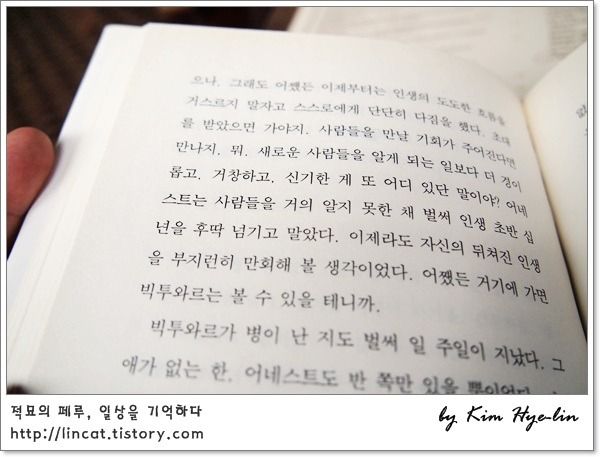 으나. 그래도 어쨌든 이제부터는 인생의 도도한 흐름을
거스르지 말자고 스스로에게 단단히 다짐을 했다. 초대
를 받았으면 가야지. 사람들을 만날 기회가 주어진다면
만나지. 뭐. 새로운 사람들을 알게 되는 일보다 더 경이
롭고. 거창하고. 신기한 게 또 어디 있단 말이야? 어네
스트는 사람들을 거의 알지 못한 채 벌써 인생 초반 십
년을 후딱 넘기고 말았다. 이제라도 자신의 뒤쳐진 인생
을 부지런히 만회해 볼 생각이었다. 어쨌든 거기에 가면
빅투와르는 볼 수 있을 테니까.
빅투와르가 병이 난 지도 벌써 일 주일이 지났다. 그
애가 없는 한. 어네스트도 반 쪽만 있을 뿐이었다.
적묘의 페루, 일상을 기억하다
by Kim Hye-lin
http://lincat.tistory.com